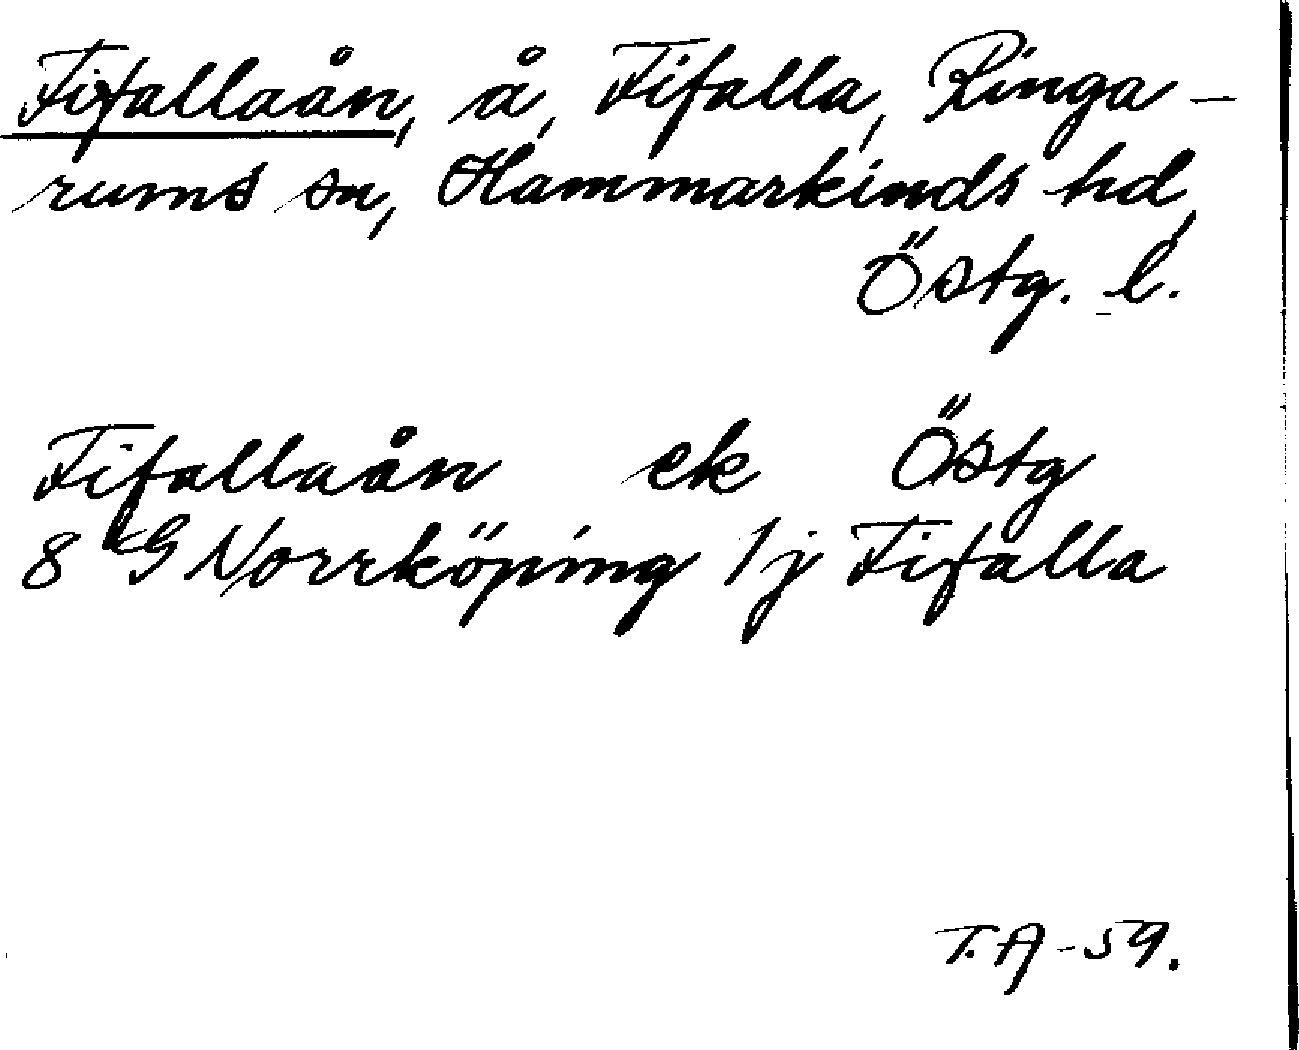 Fifallaån, å, Fifalla, Ringa-
rums sn, Hammarkinds hd,
Östg. l.
Fifallaån ek Östg
8 SG Norrköping 1j Fifalla
T.A-59.